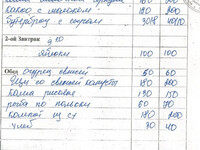 какао с молоком 180 200
бутерброд с сыром
2-ой Завтрак
яблоки 100 100
Обед огурец свежий 60 60
Щи со свежей капусты 180 200
каша рисовая 130 150
рыба по польски 60 70
компот из с/ф 180 200
хлеб 30 40